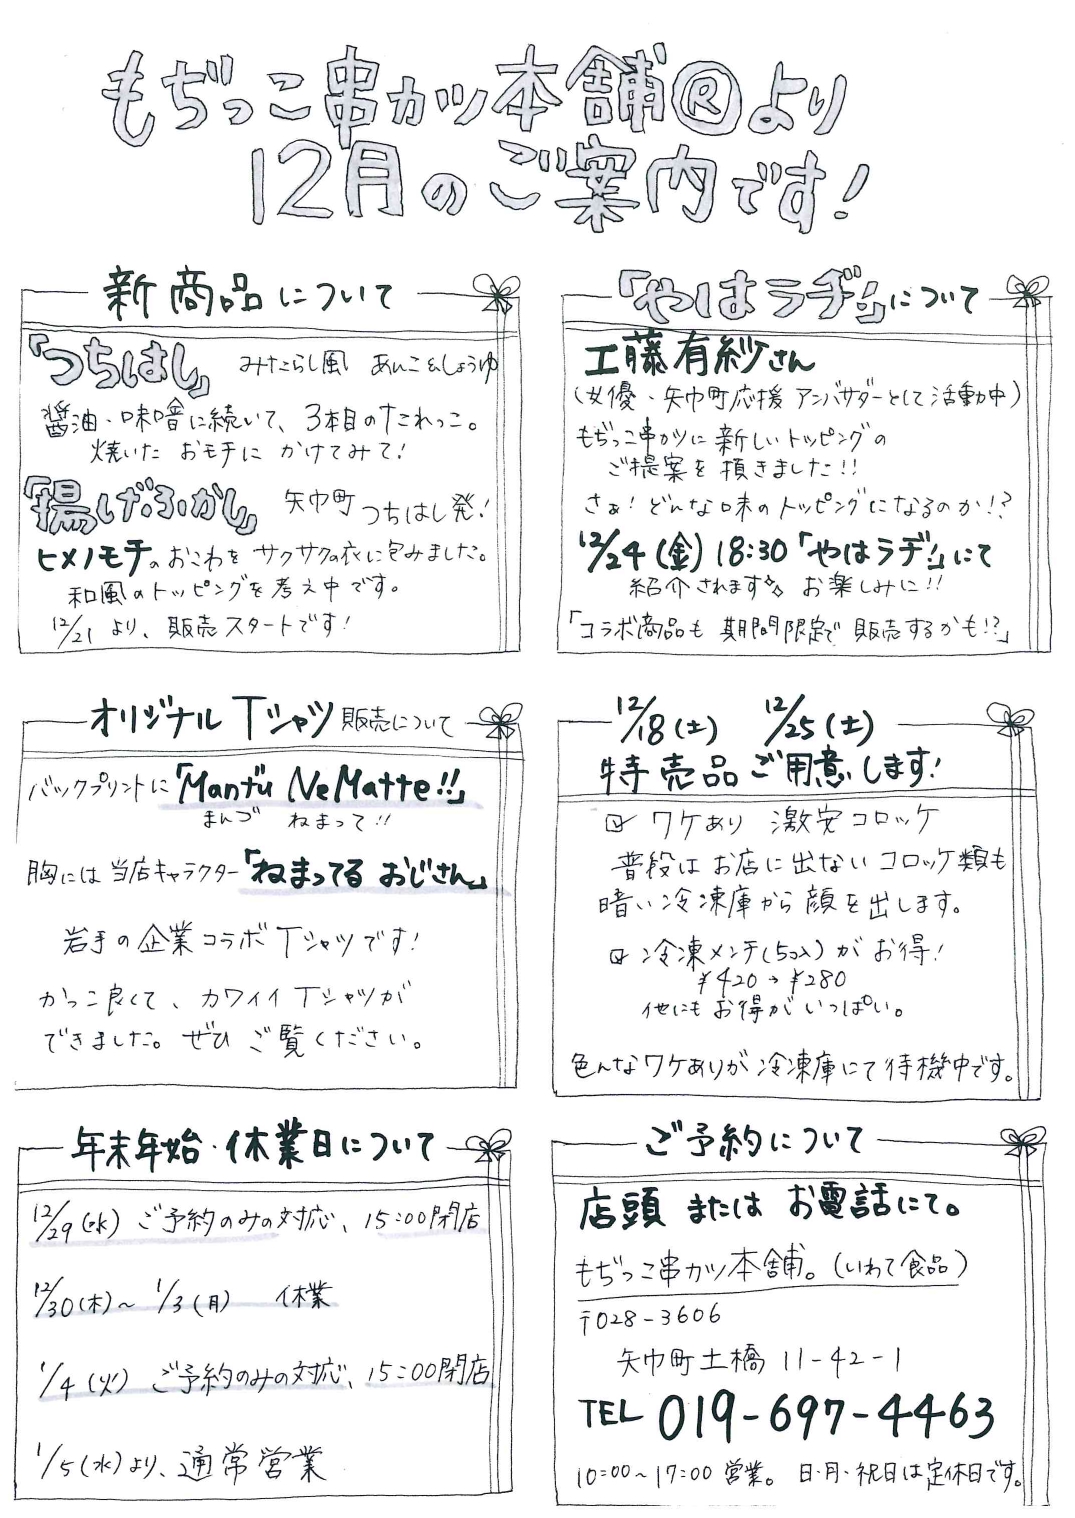 もぢっこ串カツ本舗®より
12月のご案内です!
新商品について
「つちはし」 みたらし風 あんこ&しょうゆ
醤油・味噌に続いて、3本目のたれっこ。
焼いた おモチに かけてみて!
「揚げふかし」 矢巾町 つちはし発!
ヒメノモチのおこわを サクサクの衣に包みました。
和風のトッピングを考え中です。
12/21 より、販売スタートです!
「やはラヂ!」について
工藤有紗さん
(女優・矢巾町応援 アンバサダーとして活動中)
もぢっこ串カツに新しいトッピングの
ご提案を頂きました!!
さぁ!どんな味のトッピングになるのか!?
12/24(金)18:30「やはラヂ!」にて
紹介されます お楽しみに!!
「コラボ商品も 期間限定で 販売するかも!?」
オリジナル Tシャツ 販売について
バックプリントに「Manづ NeMatte!!」
まんづ ねまって!!
胸には 当店キャラクター「ねまってる おじさん」
岩手の企業コラボTシャツです!
かっこ良くて、カワイイ Tシャツが
できました。ぜひ ご覧ください。
12/18(土) 12/25(土)
特売品ご用意します!
☑ ワケあり 激安コロッケ
普段はお店に出ない コロッケ類も
暗い冷凍庫から 顔を出します。
☑ 冷凍メンチ(5コ入)が お得!
¥420→¥280
他にも お得が いっぱい。
色んなワケありが冷凍庫にて待機中です。
年末年始・休業日について
12/29(水) ご予約のみの対応、15:00閉店
12/30(木)~ 1/3(月) 休業
1/4(火) ご予約のみの対応、15:00閉店
1/5(水)より、通常営業
ご予約について
店頭 または お電話にて。
もぢっこ串カツ本舗。(いわて食品)
〒028-3606
矢巾町土橋 11-42-1
TEL 019-697-4463
10:00~17:00 営業。 日・月・祝日は定休日です。